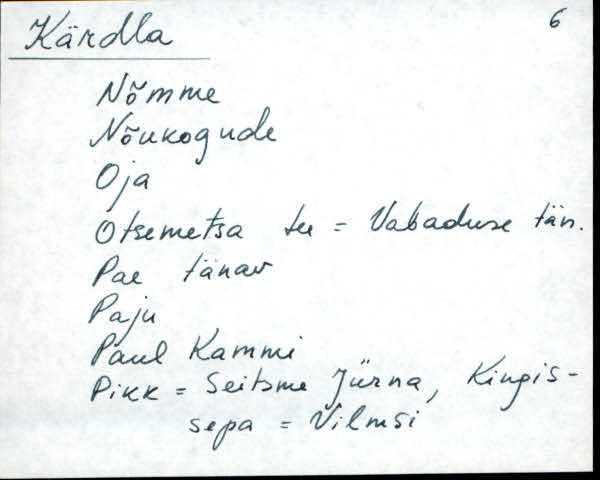 Kärdla 6
Nõmme
Nõukogude
Oja
Otsemetsa tee = Vabaduse tän.
Pae tänav
Paju
Paul Kammi
Pikk = Seitsme Jürna, Kingis-
sepa = Vilmsi